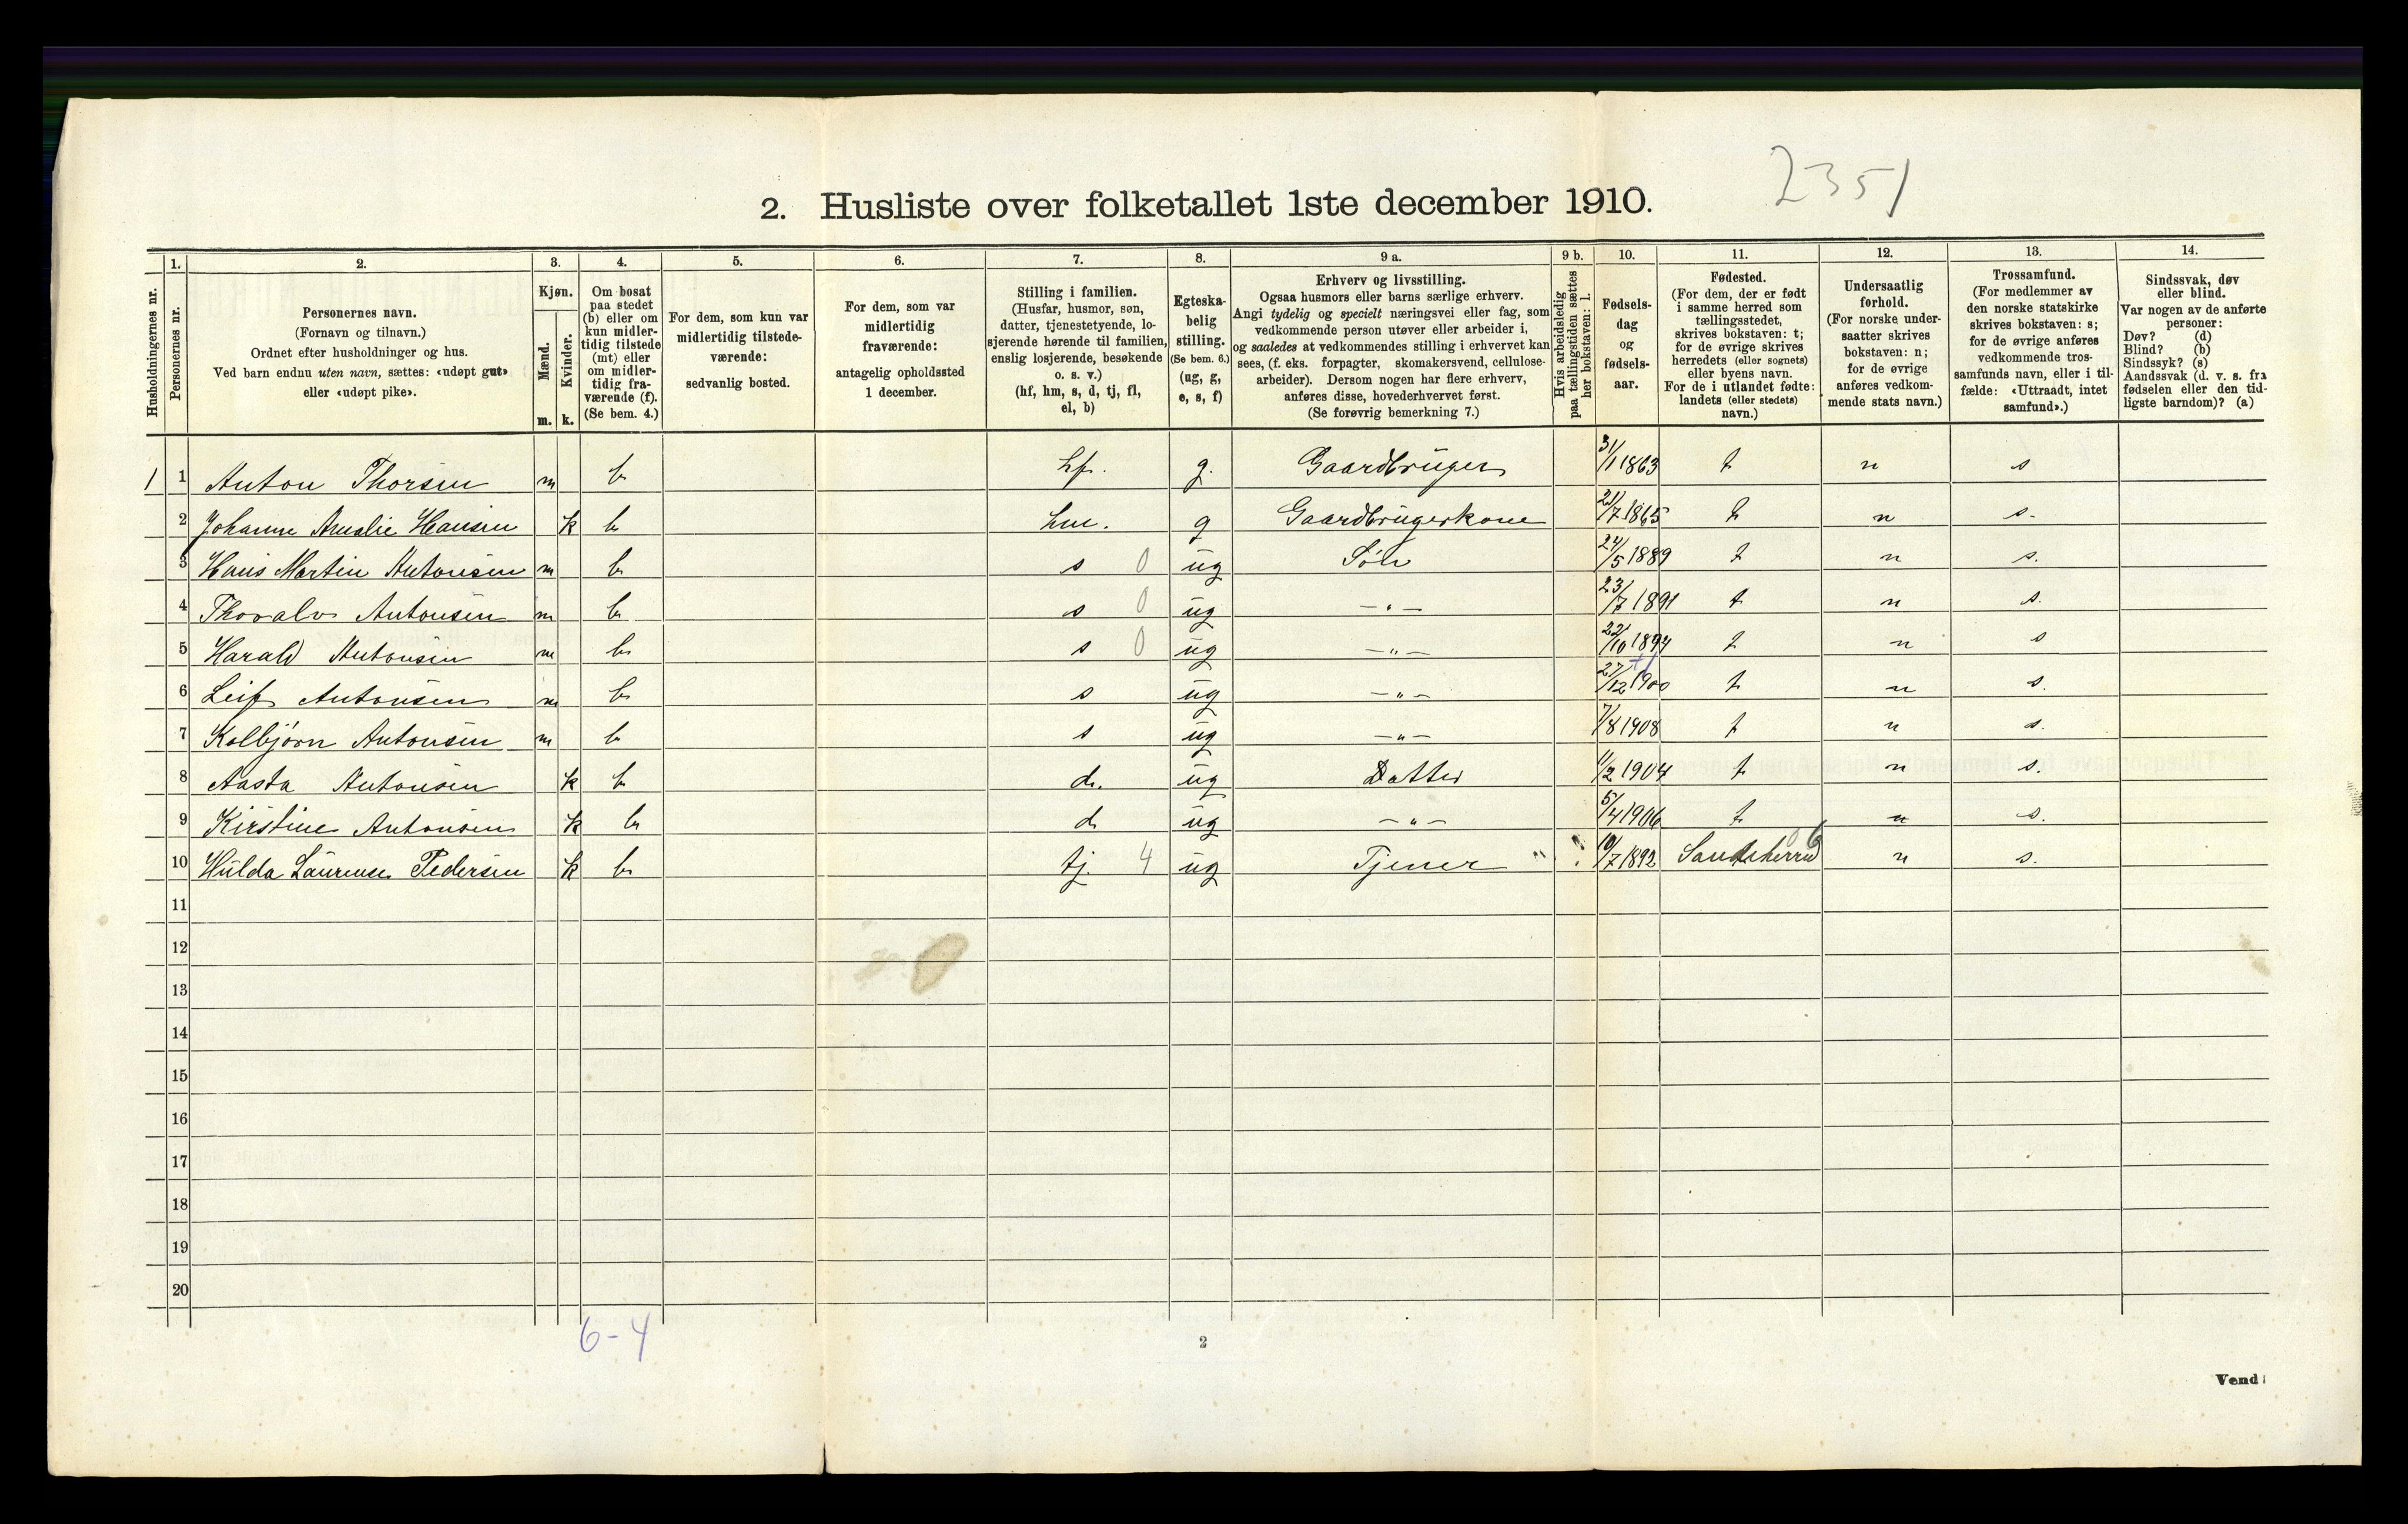 2351
2. Husliste over folketallet 1ste december 1910.
Husholdningernes nr.
1.
Personernes nr.
2.
Personernes navn.
(Fornavn og tilnavn.)
Ordnet efter husholdninger og hus.
Ved barn endnu uten navn, sættes: «udøpt gut»
eller «udøpt pike».
3.
Kjøn.
Mænd.
Kvinder.
m. k.
4.
Om bosat
paa stedet
(b) eller om
kun midler-
tidig tilstede
(mt) eller
om midler-
tidig fra-
værende (f).
(Se bem. 4.)
5.
For dem, som kun var
midlertidig tilstede-
værende:
sedvanlig bosted.
6.
For dem, som var
midlertidig
fraværende:
antagelig opholdssted
1 december.
7.
Stilling i familien.
(Husfar, husmor, søn,
datter, tjenestetyende, lo-
sjerende hørende til familien,
enslig losjerende, besøkende
o. s. v.)
(hf, hm, s, d, tj, fl,
el, b)
8.
Egteska-
belig
stilling.
(Se bem. 6.)
(ug, g,
e, s, f)
9 a.
Erhverv og livsstilling.
Ogsaa husmors eller barns særlige erhverv.
Angi tydelig og specielt næringsvei eller fag, som
vedkommende person utøver eller arbeider i,
og saaledes at vedkommendes stilling i erhvervet kan
sees, (f. eks. forpagter, skomakersvend, cellulose-
arbeider). Dersom nogen har flere erhverv,
anføres disse, hovederhvervet først.
(Se forøvrig bemerkning 7.)
9 b.
Hvis arbeidsledig
paa tællingstiden sættes
her bokstaven: l.
10.
Fødsels-
dag
og
fødsels-
aar.
11.
Fødested.
(For dem, der er født
i samme herred som
tællingsstedet,
skrives bokstaven: t;
for de øvrige skrives
herredets (eller sognets)
eller byens navn.
For de i utlandet fødte:
landets (eller stedets)
navn.)
12.
Undersaatlig
forhold.
(For norske under-
saatter skrives
bokstaven: n;
for de øvrige
anføres vedkom-
mende stats navn.)
13.
Trossamfund.
(For medlemmer av
den norske statskirke
skrives bokstaven: s;
for de øvrige anføres
vedkommende tros-
samfunds navn, eller i til-
fælde: «Uttraadt, intet
samfund».)
14.
Sindssvak, døv
eller blind.
Var nogen av de anførte
personer:
Døv? (d)
Blind? (b)
Sindssyk? (s)
Aandssvak (d. v. s. fra
fødselen eller den tid-
ligste barndom)? (a)
1 1 Anton Thorsen m b hf. g. Gaardbruger 31/1 1863 t n s
2 Johanne Amalie Hansen k b hm. g Gaardbrugerkone 21/7 1865 t n s.
3 Hans Martin Antonsen m b s 0 ug Søn 24/5 1889 t n s.
4 Thoralv Antonsen m b s 0 ug —"— 23/7 1891 t n s.
5 Harald Antonsen m b s 0 ug —"— 22/10 1894 t n s
6 Leif Antonsen m b s ug —"— 27/12 1900 t n s.
7 Kolbjørn Antonsen m b s ug —"— 7/8 1908 t n s.
8 Aasta Antonsen k b d. ug Datter 11/2 1904 t n s.
9 Kirstine Antonsen k b d ug —"— 5/4 1906 t n s.
10 Hulda Laurense Pedersen k b tj. 4 ug Tjener 10/7 1892 n s.
11
12
13
14
15
16
17
18
19
20
6-4
2
Vend!